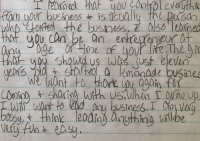 I learned that you control everything
from your business & is usually the person
who started the business. I also learned
that you can be an entrepreneur at
any age or time of your life. The girl
that you showed us was just eleven
years old & started a lemonade business
We want to thank you again for
coming & sharing with us. When I grow up
I will want to lead any business. I am very
bossy, & think leading anything will be
very fun & easy.